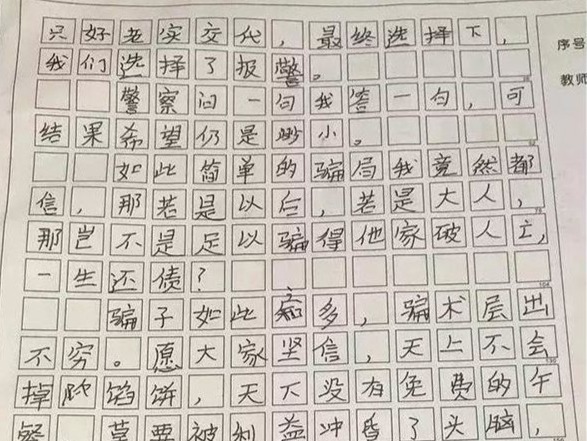 只好老实交代，最终选择下，
序号
我们选择了报警。
教师
警察问一句我答一句，可
结果希望仍是渺小。
如此简单的骗局我竟然都
信，那若是以后，若是大人，
那岂不是足以骗得他家破人亡，
一生还债？
骗子如此之多，骗术层出
不穷。愿大家坚信，天上不会
掉馅饼，天下没有免费的午
餐，莫要被利益冲昏了头脑，